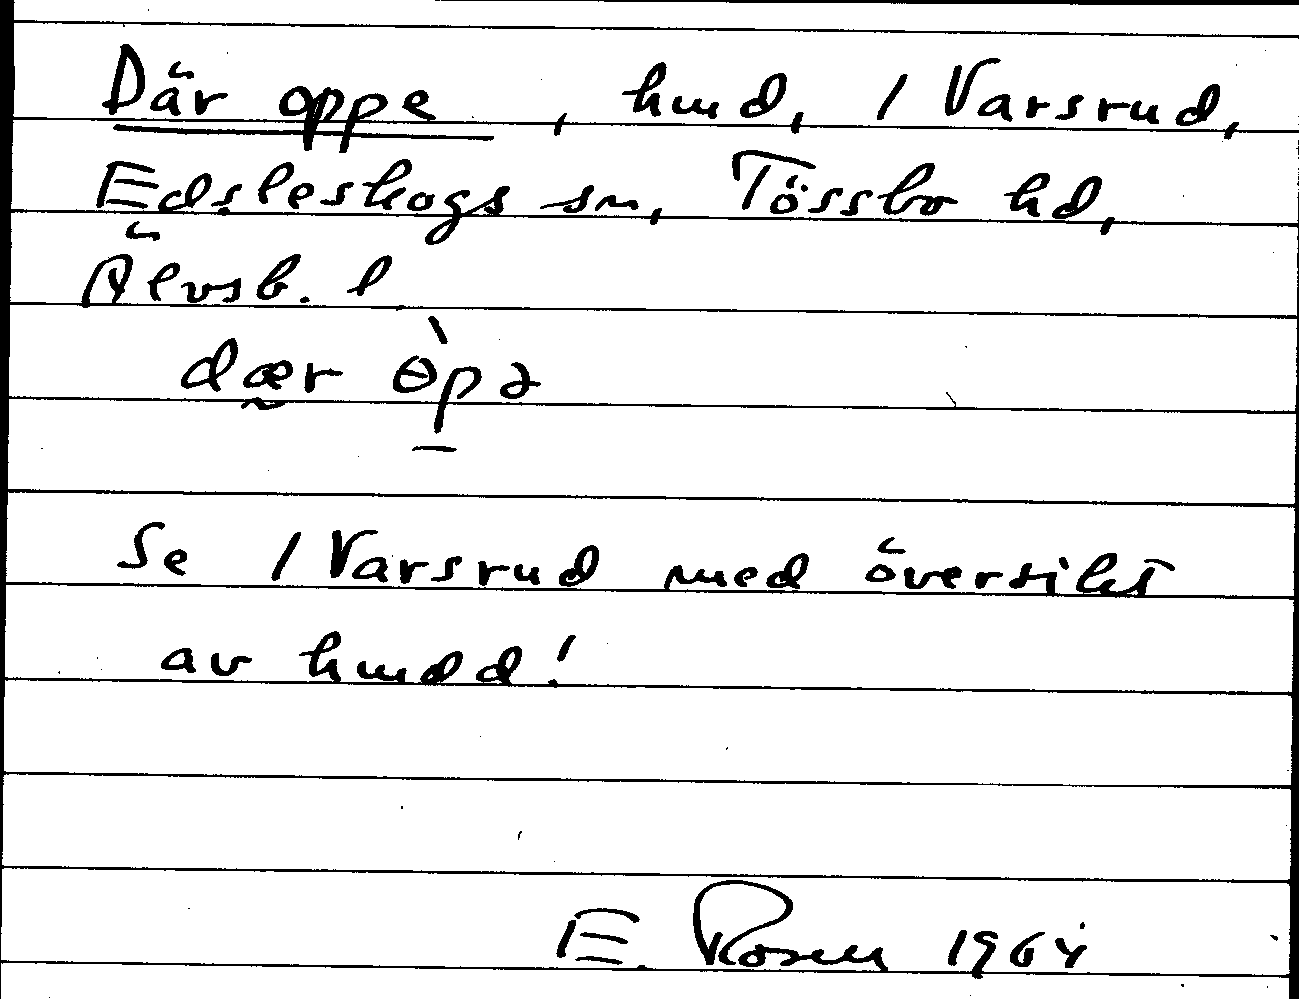 Där oppe, hmd, / Varsrud,
Edsleskogs sn, Tössbo hd,
Älvsb. l.
dær ɵ̀pə
Se / Varsrud med översikt
av hmdd!
E. Rosén 1964